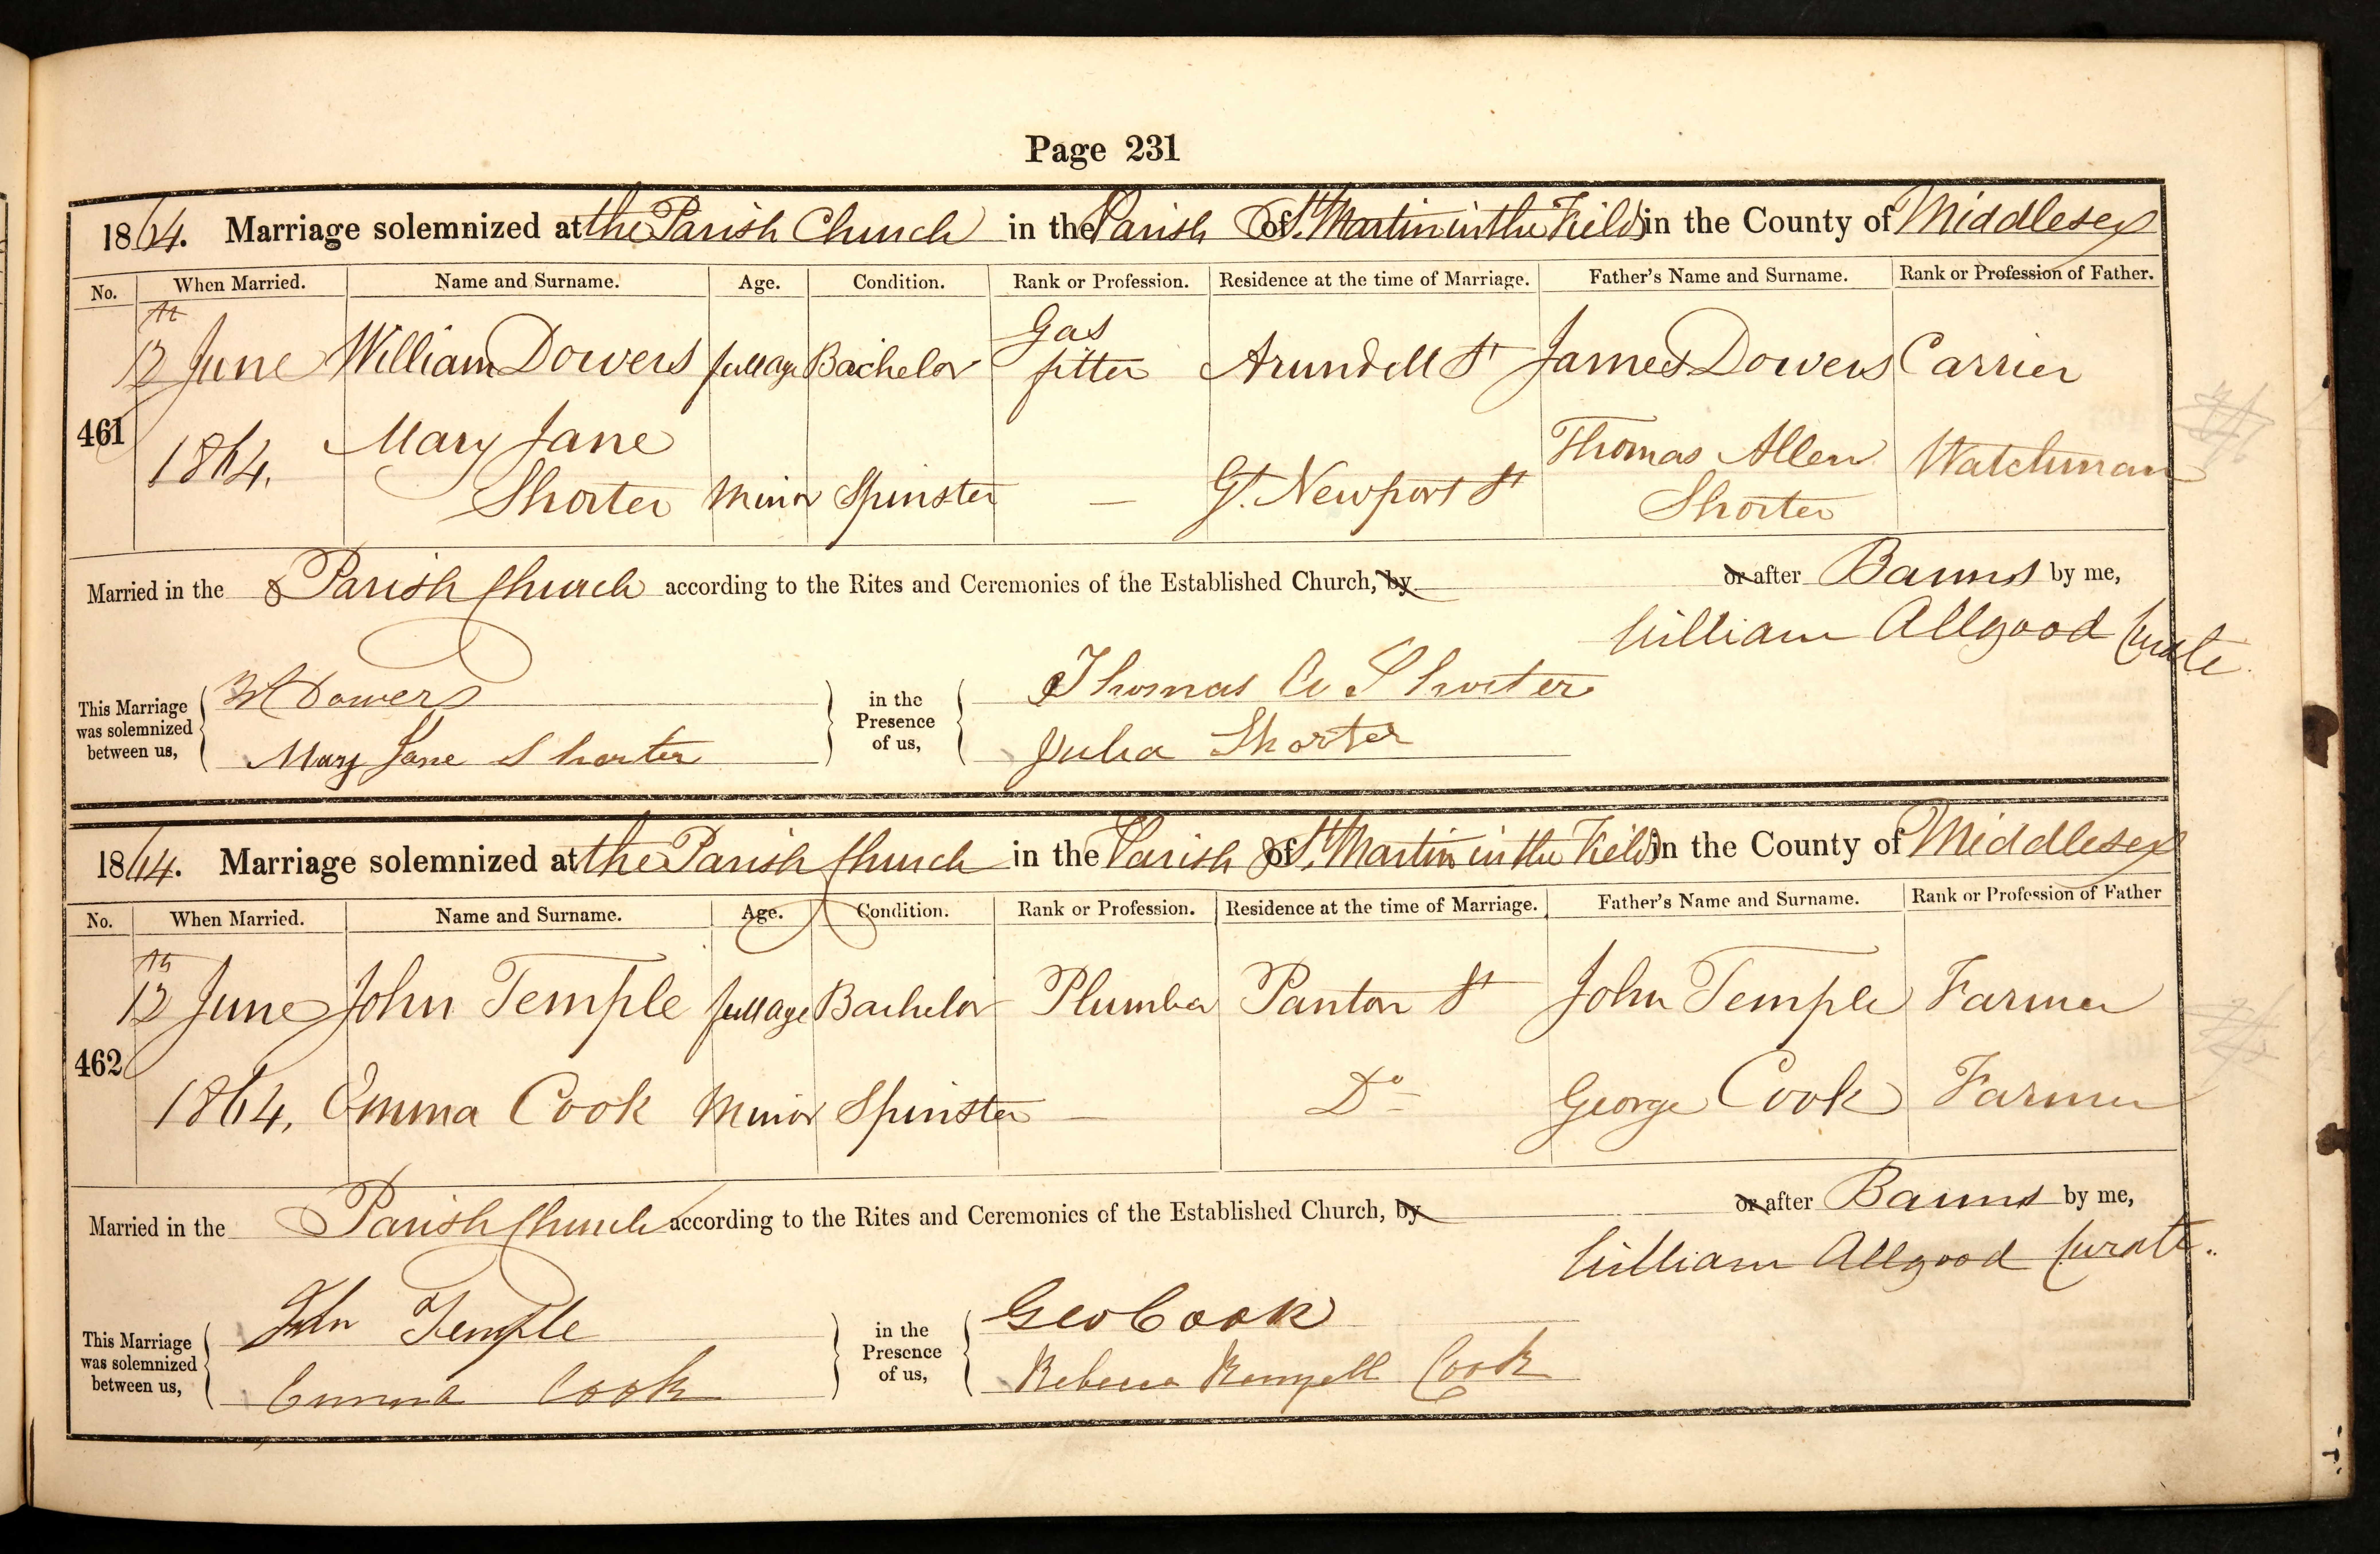 Page 231
1864. Marriage solemnized at the Parish Church in the Parish of St. Martin in the Fields in the County of Middlesex
No. When Married. Name and Surname. Age. Condition. Rank or Profession. Residence at the time of Marriage. Father's Name and Surname. Rank or Profession of Father.
461 12th June 1864. William Dowers full age Bachelor Gas fitter Arundell St James Dowers Carrier
Mary Jane Shorter Minor Spinster — Gt. Newport St Thomas Allen Shorter Watchman
Married in the Parish Church according to the Rites and Ceremonies of the Established Church, by or after Banns by me,
William Allgood Curate.
This Marriage was solemnized between us, Wm Dowers Mary Jane Shorter in the Presence of us, Thomas A Shorter Julia Shorter
1864. Marriage solemnized at the Parish Church in the Parish of St. Martin in the Fields in the County of Middlesex
No. When Married. Name and Surname. Age. Condition. Rank or Profession. Residence at the time of Marriage. Father's Name and Surname. Rank or Profession of Father
462 12th June 1864. John Temple full age Bachelor Plumber Panton St John Temple Farmer
Emma Cook Minor Spinster — Do George Cook Farmer
Married in the Parish Church according to the Rites and Ceremonies of the Established Church, by or after Banns by me,
William Allgood Curate.
This Marriage was solemnized between us, John Temple Emma Cook in the Presence of us, Geo Cook Rebecca Cook